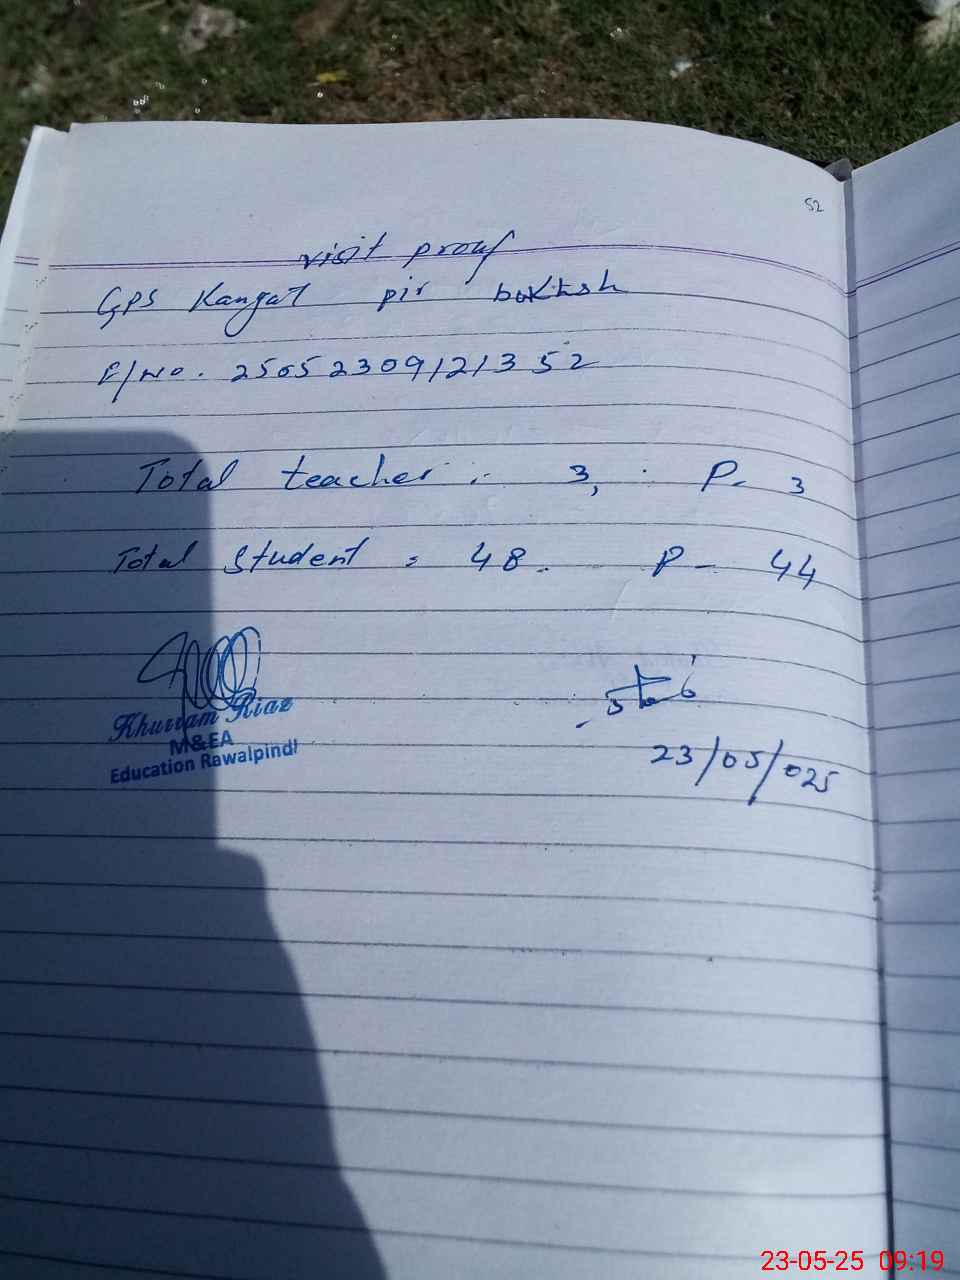 52
visit prouf
GPS Kangat pir bakhsh
E/No. 25052309121352
Total teacher :- 3, P- 3
Total Student = 48. P- 44
Khurram Riaz
M&EA
Education Rawalpindi
23/05/025
23-05-25 09:19